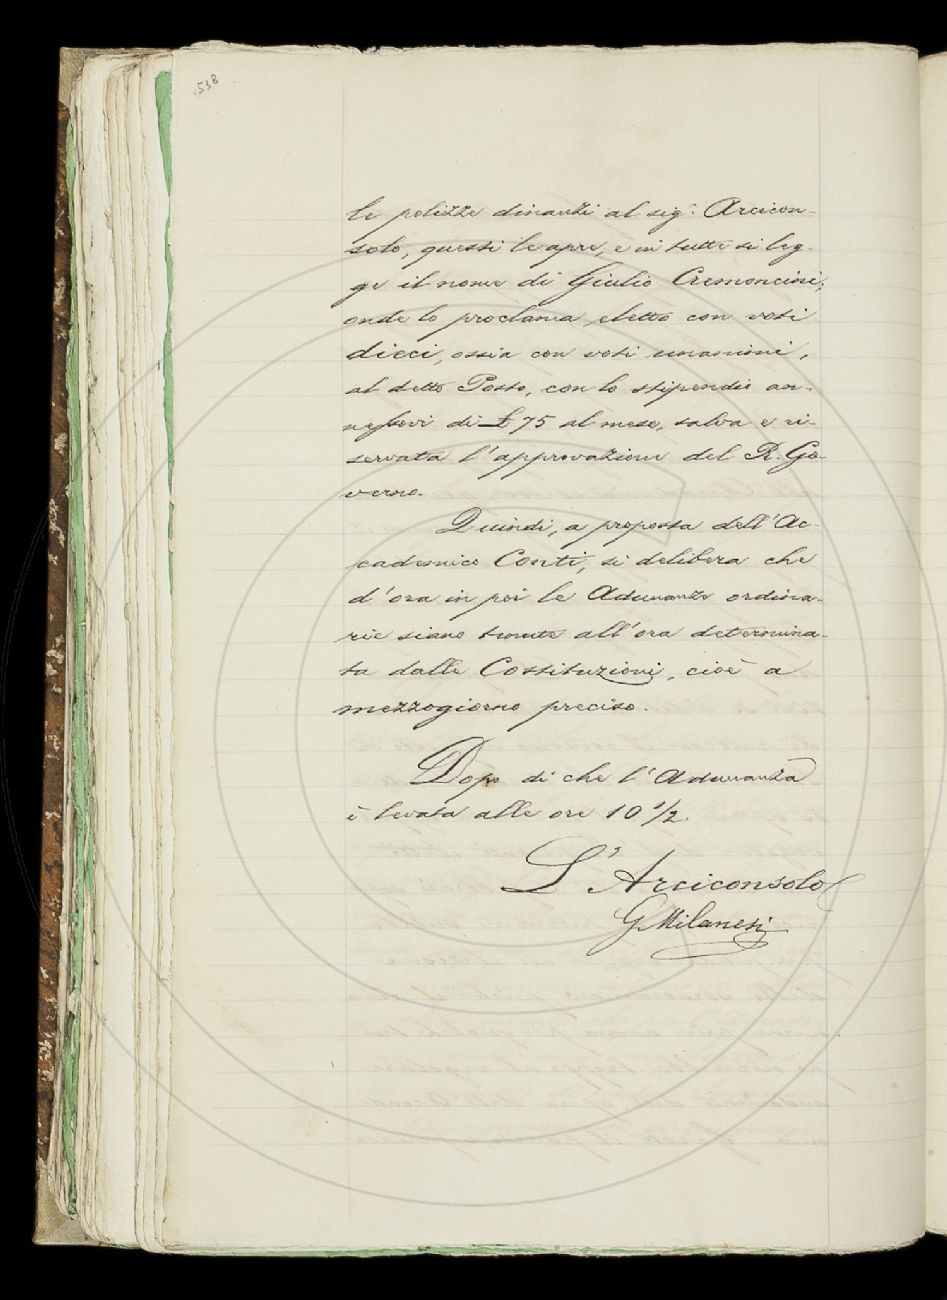 538
le polizze dinanzi al sig.r Arcicon-
solo, questi le apre, e in tutte si leg-
ge il nome di Giulio Cremoncini;
onde lo proclama eletto con voti
dieci, ossia con voti unanimi,
al detto Posto, con lo stipendio an-
nessovi di £ 75 al mese, salva e ri-
servata l'approvazione del R. Go-
verno.
Quindi, a proposta dell'Ac-
cademico Conti, si delibera che
d'ora in poi le Adunanze ordina-
rie siano tenute all'ora determina-
ta dalle Costituzioni, cioè a
mezzogiorno preciso.
Dopo di che l'Adunanza
è levata alle ore 10 1/2.
L'Arciconsolo
G Milanesi